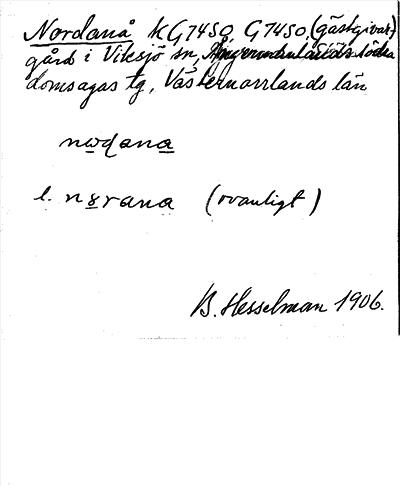 Nordanå KG74SO, G74SO, (gästgivar)
gård i Viksjö sn, Ångermanlands södra
domsagas tg, Västernorrlands län
nodana
l. norana (ovanligt)
B. Hesselman 1906.